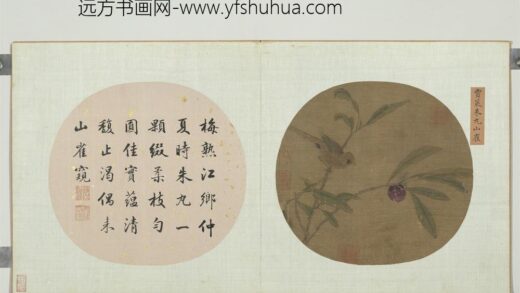 远方书画网-www.yfshuhua.com
朱丸山雀
梅熟江鄉仲
夏時朱丸一
顆綴柔枝勻
圓佳實蘊清
馥止渴偶来
山雀窺